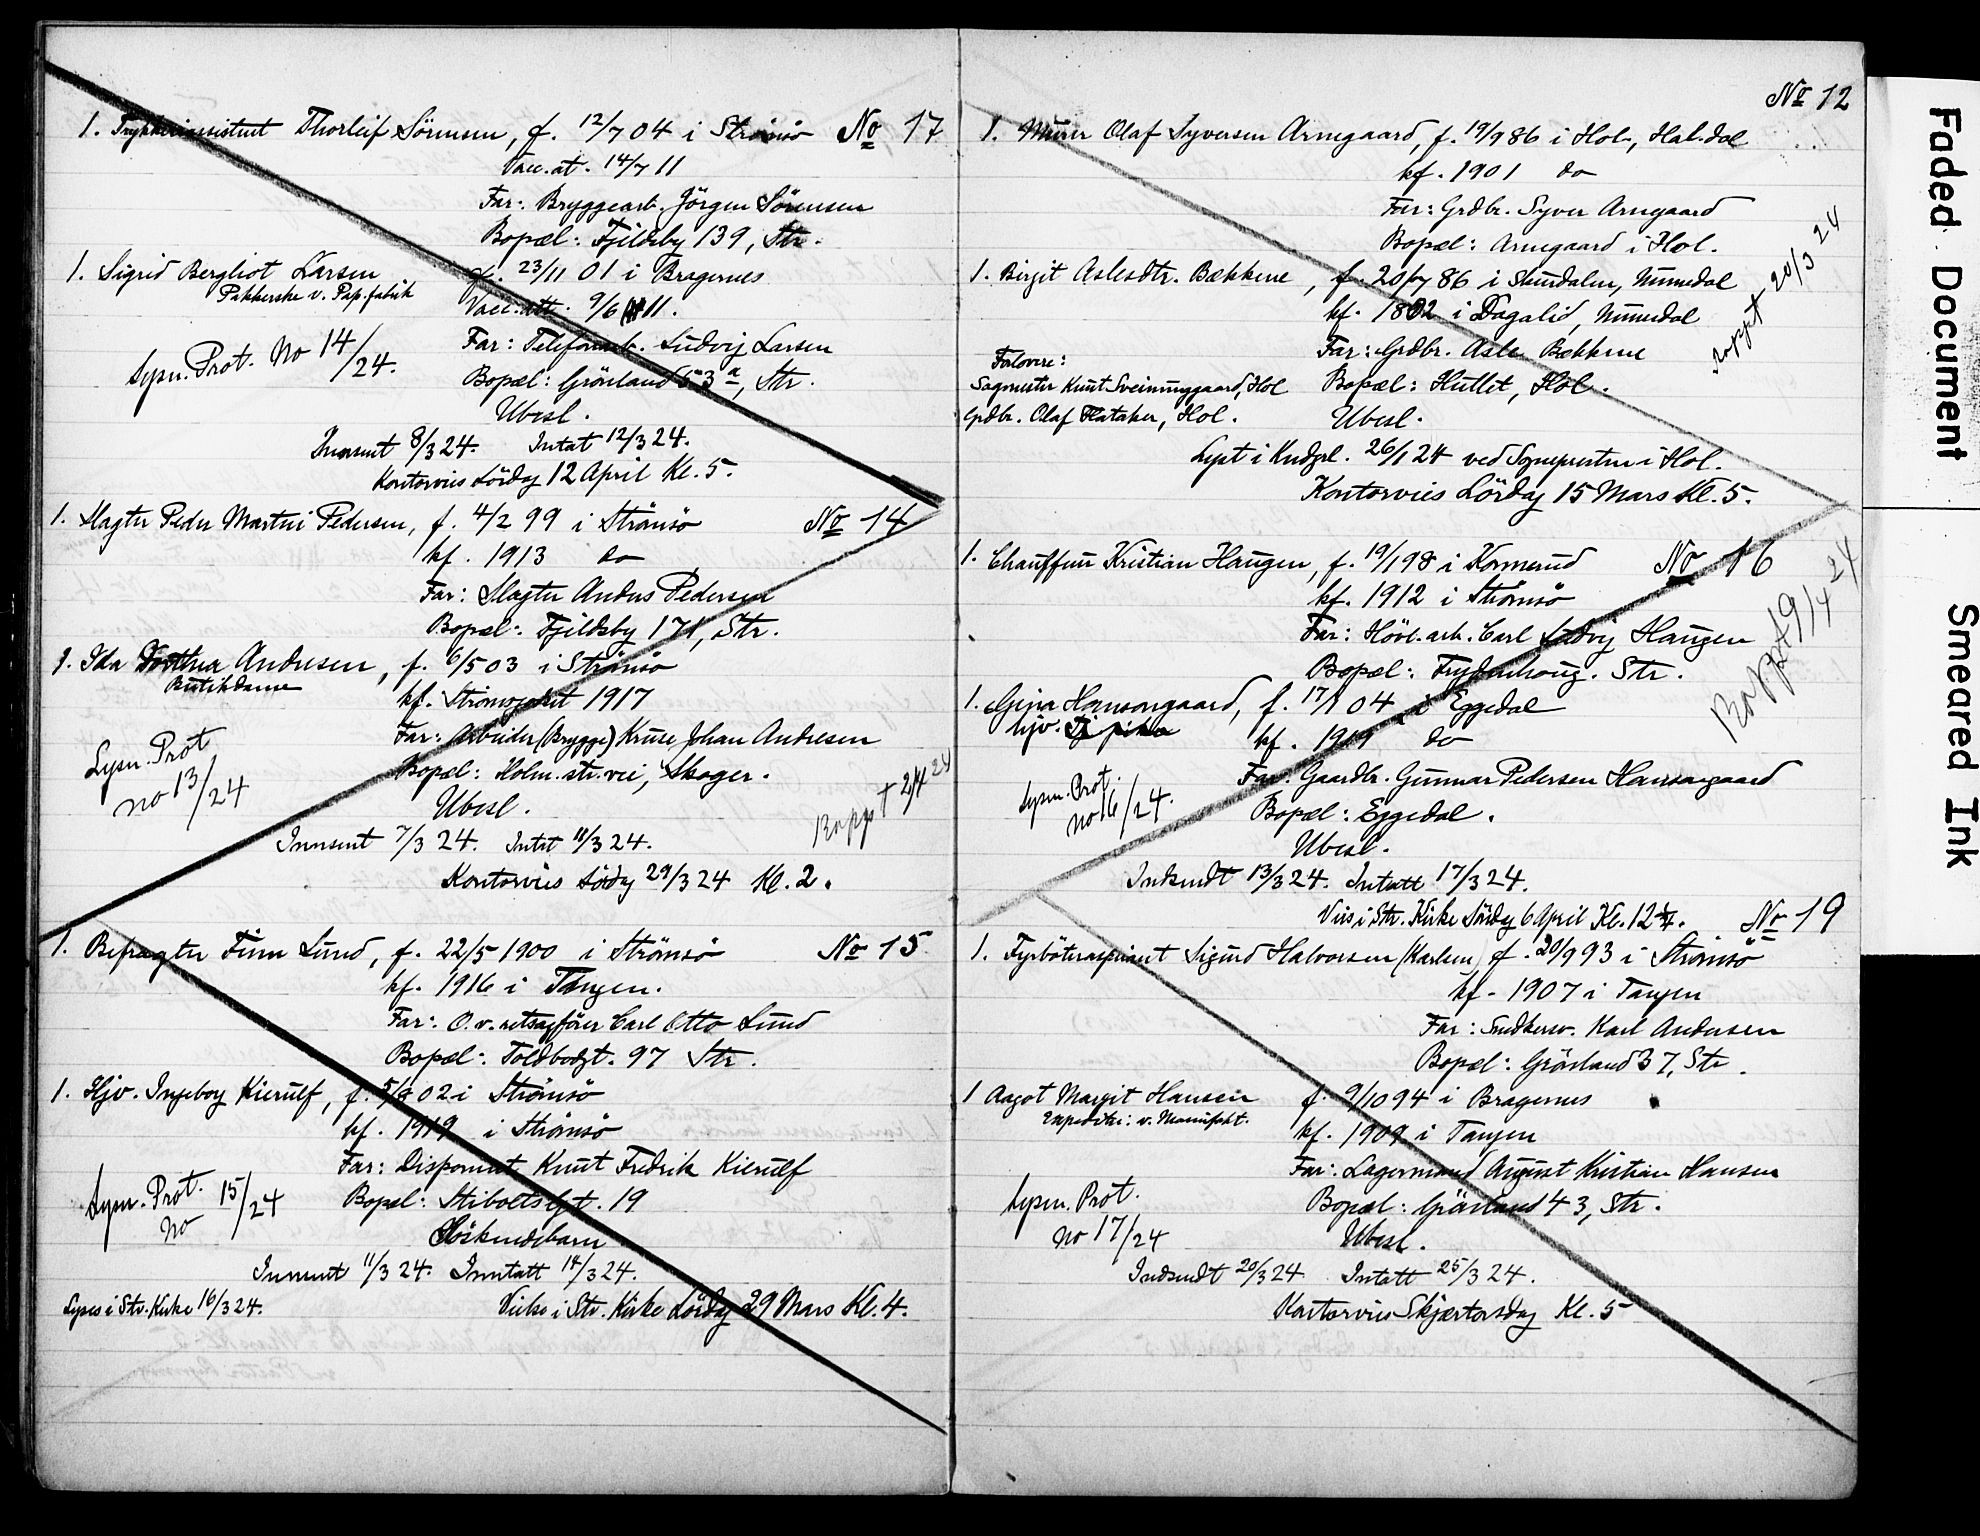 1. Trykkeriassistent Thorleif Sörensen, f. 12/7 04 i Strömsö No 17
Vacc. at. 14/7 11
Far: Bryggearb. Jörgen Sörensen
Bopæl: Fjildsby 139, Str.
1. Sigrid Bergliot Larsen f. 23/11 01 i Bragernes
Pakkerske v. Pap.fabrik
Vacc. att. 9/6 11.
Far: Telefonarb. Ludvig Larsen
Lysn. Prot. No 14/24.
Bopæl: Grönland 53 a, Str.
Ubesl.
Innsent 8/3 24. Intat 12/3 24.
Kontorvies Lördag 12 April Kl. 5.
1. Slagter Peder Martin Pedersen, f. 4/2 99 i Strömsö No 14
kf. 1913 do
Far: Slagter Anders Pedersen
Bopæl: Fjildsby 171, Str.
1. Ida Dorthea Andresen, f. 6/5 03 i Strömsö
Butikdame
kf. Strömsgodset 1917
Far: Arbeider (Brygge) Kruse Johan Andresen
Lysn. Prot
no 13/24
Bopæl: Holm.str.vei, Skoger.
Ubesl.
Rappt 2/4 24
Innsent 7/3 24. Intat 11/3 24.
Kontorvies Lördag 29/3 24 Kl. 2.
1. Befragter Finn Lund, f. 22/5 1900 i Strömsö No 15
kf. 1916 i Tangen.
Far: O.r.retsagförer Carl Otto Lund
Bopæl: Toldbodgt. 97 Str.
1. Hjv. Ingeborg Kierulf, f. 02 i Strömsö
kf. 1919 i Strömsö
Far: Disponent Knut Fredrik Kierulf
Lysn. Prot. 15/24
No
Bopæl: Stiboltsgt. 19
Söskendebarn
Innsent 11/3 24. Inntatt 14/3 24.
Lyses i Str. Kirke 16/3 24. Vies i Str. Kirke Lördag 29 Mars Kl. 4.
No 12
1. Murer Olaf Syversen Arnegaard, f. 19/9 86 i Hol, Hal.dal
kf. 1901 do
Far: Grdbr. Syver Arnegaard
Bopæl: Arnegaard i Hol.
1. Birgit Aslesdtr. Bækkene, f. 20/7 86 i Skurdalen, Numedal
kf. 1802 i Dagalid, Numedal
Rappt 20/3 24
Far: Grdbr. Asle Bækkene
Forlovere:
Sagmester Knut Sveinunggaard, Hol Bopæl: Hutlet, Hol.
Grdbr. Olaf Flataker, Hol. Ubesl.
Lyst i Kndgel. 26/1 24 ved Sogneprsten i Hol.
Kontorvies Lördag 15 Mars Kl. 5.
1. Chauffeur Kristian Haugen, f. 19/1 98 i Konnerud No 16
kf. 1912 i Strömsö
Far: Hövl.arb. Carl Ludvig Haugen
Bopæl: Frydenhoug. Str.
Rappt 9/4 24
1. Gina Hansongaard, f. 17/1 04 i Eggedal
hjv.
kf. 1919 do
Far: Gaardbr. Gunnar Pedersen Hansongaard
Lysn. Prot.
no 16/24.
Bopæl: Eggedal.
Ubesl.
Indsendt 13/3 24. Intatt 17/3 24.
Vies i Str. Kirke Lördag 6 April Kl. 12 1/4. No 19
1. Fyrböteraspirant Sigurd Halvorsen (Karlsen) f. 20/9 93 i Strömsö
kf. 1907 i Tangen
Far: Snedkersv. Karl Andersen
Bopæl: Grönland 37, Str.
1 Aagot Margit Hansen f. 9/10 94 i Bragernes
Expeditri: v. Manufakt.
kf. 1909 i Tangen
Far: Lagermand August Kristian Hansen
Lysn. Prot.
no 17/24
Bopæl: Grönland 43, Str.
Ubesl.
Indsendt 20/3 24 Intatt 25/3 24.
Kontorvies Skjærtorsdag Kl. 5
Faded Document
Smeared Ink